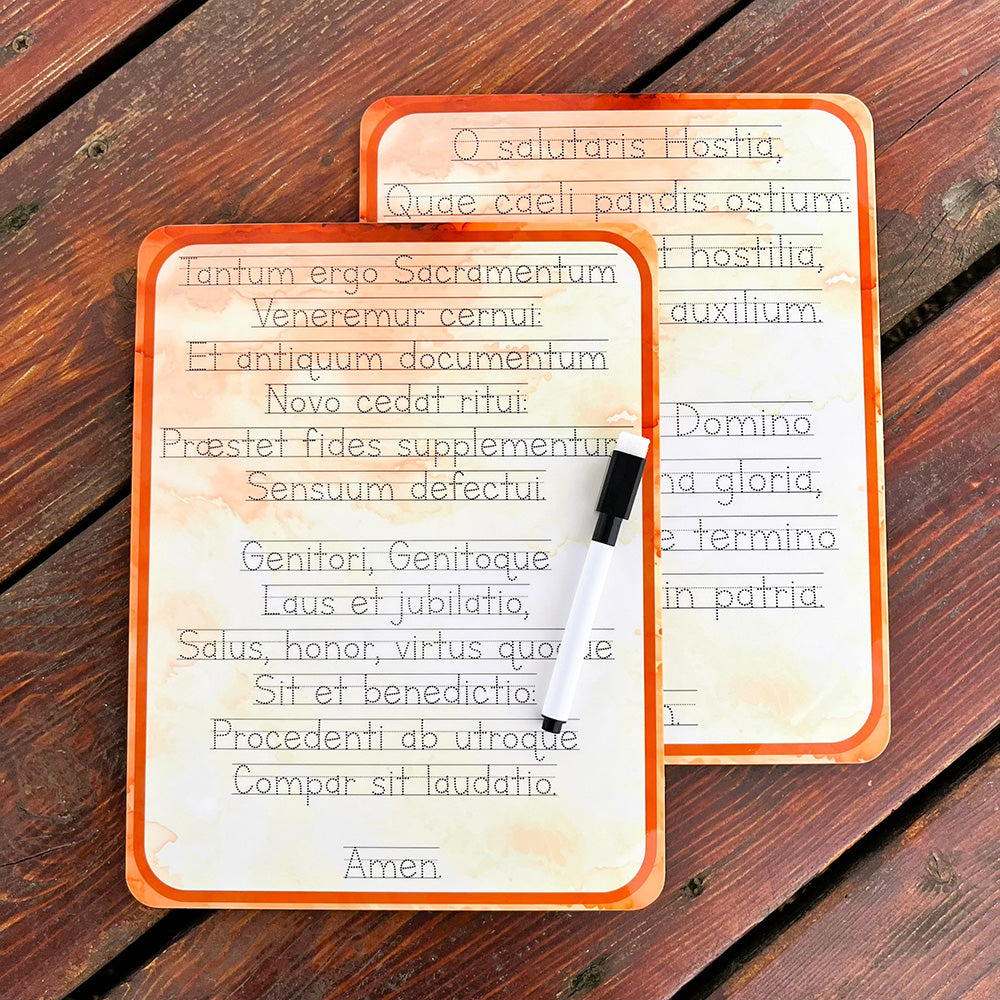 Tantum ergo Sacramentum
Veneremur cernui:
Et antiquum documentum
Novo cedat ritui:
Præstet fides supplementum
Sensuum defectui.
Genitori, Genitoque
Laus et jubilatio,
Salus, honor, virtus quoque
Sit et benedictio:
Procedenti ab utroque
Compar sit laudatio.
Amen.
O salutaris Hostia,
Quae caeli pandis ostium:
hostilia,
auxilium.
Domino
gloria,
termino
in patria.